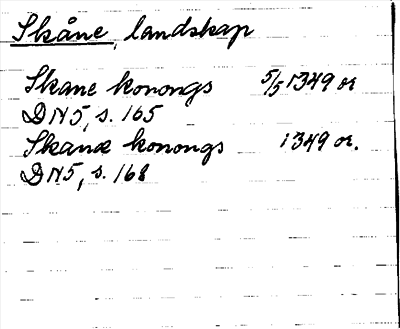 Skåne, landskap
Skane konongs 5/5 1349 or
DN 5, s. 165
Skanæ konongs 1349 or.
DN 5, s. 168